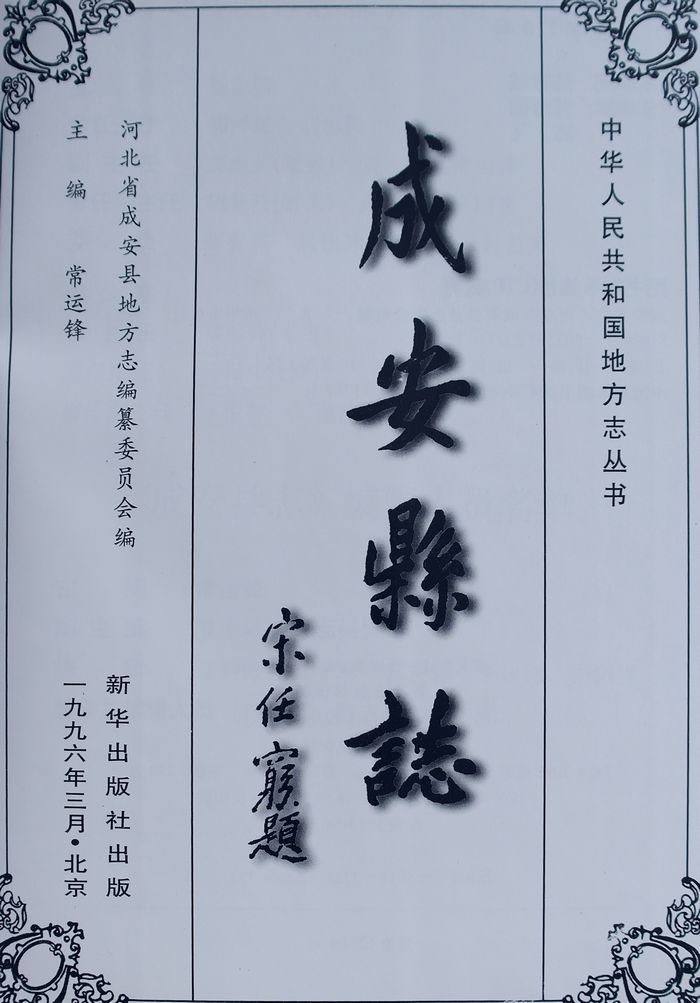 中华人民共和国地方志丛书
成安縣誌
宋任窮題
河北省成安县地方志编纂委员会编
主编 常运锋
新华出版社出版
一九九六年三月·北京